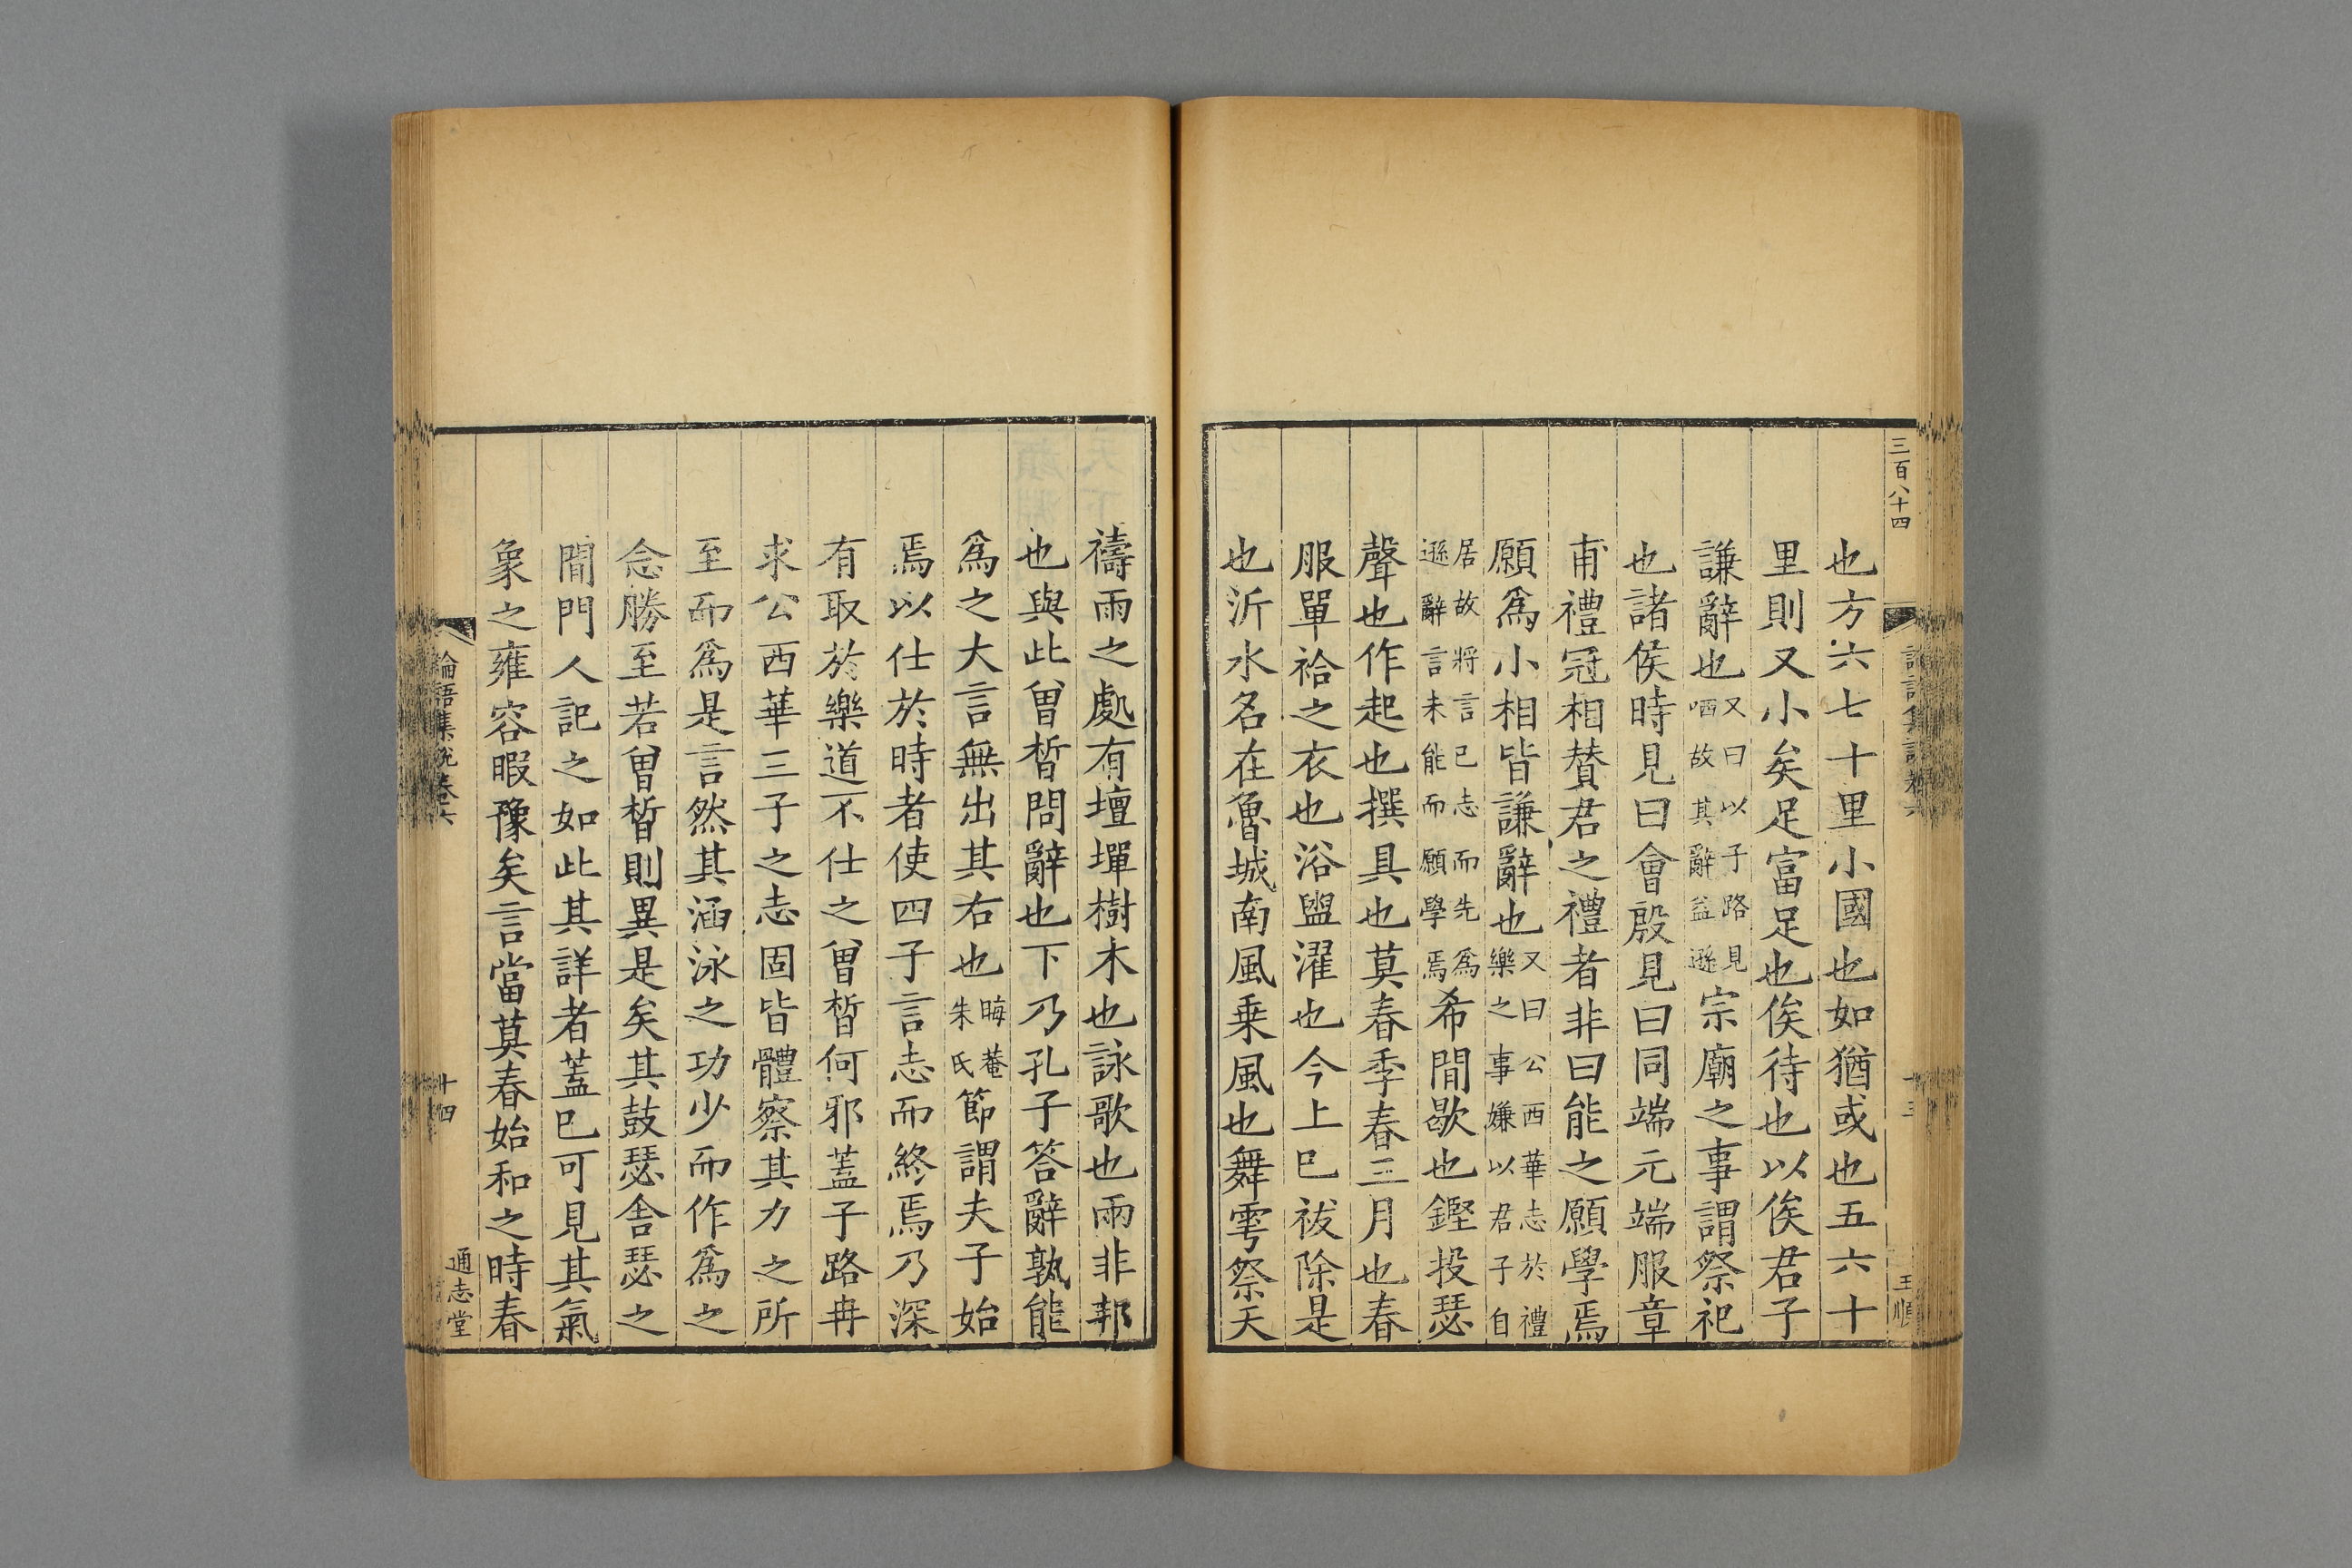 三百八十四
也方六七十里小國也如猶或也五六十
里則又小矣足富足也俟待也以俟君子
謙辭也又曰以子路見哂故其辭益遜宗廟之事謂祭祀
也諸侯時見曰會殷見曰同端元端服章
甫禮冠相贊君之禮者非曰能之願學焉
願爲小相皆謙辭也又曰公西華志於禮樂之事嫌以君子自
居故將言已志而先爲遜辭言未能而願學焉希間歇也鏗投瑟
聲也作起也撰具也莫春季春三月也春
服單袷之衣也浴盥濯也今上巳祓除是
也沂水名在魯城南風乗風也舞雩祭天
禱雨之處有壇墠樹木也詠歌也兩非邦
也與此曾晳問辭也下乃孔子答辭孰能
爲之大言無出其右也晦菴朱氏節謂夫子始
焉以仕於時者使四子言志而終焉乃深
有取於樂道不仕之曾晳何邪蓋子路冉
求公西華三子之志固皆體察其力之所
至而爲是言然其涵泳之功少而作爲之
念勝至若曾晳則異是矣其鼓瑟舍瑟之
間門人記之如此其詳者蓋已可見其氣
象之雍容暇豫矣言當莫春始和之時春
論語集說卷六
十四
通志堂